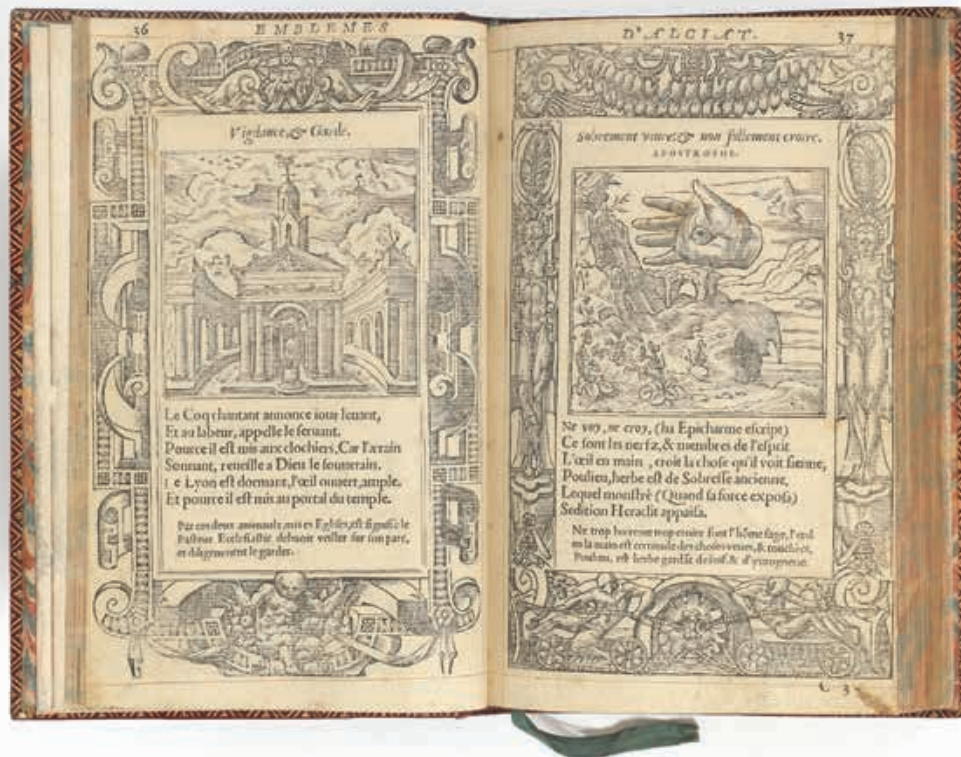 36
EMBLEMES
Vigilance, & Garde.
Le Coq chantant annonce iour leuant,
Et au labeur, appelle le seruant.
Pource il est mis aux clochiers, Car l'ærain
Sonnant, reueille a Dieu le souuerain.
Le Lyon est dormant, l'œil ouuert, ample.
Et pource il est mis au portal du temple.
Par ces deux animaulx, mis es Eglises, est signifié le
Pasteur Ecclesiastic debuoir veiller sur son parc,
et diligemment le garder.
D'ALCIAT.
37
Sobrement viure: & non follement croire.
APOSTROPHE.
Ne voy, ne croy, (ha Epicharme escript)
Ce sont les nerfz, & membres de l'esprit
L'œil en main, croit la chose qu'il voit sienne,
Poulieu, herbe est de Sobresse ancienne,
Lequel monstré (Quand sa force exposa)
Sedition Heraclit appaisa.
Ne trop boire ne trop croire font l'hõme sage, l'œil
en la main est certitude des choses veues, & touchées,
Poulieu, est herbe gardãt de soif, & d'yurognerie.
C 3